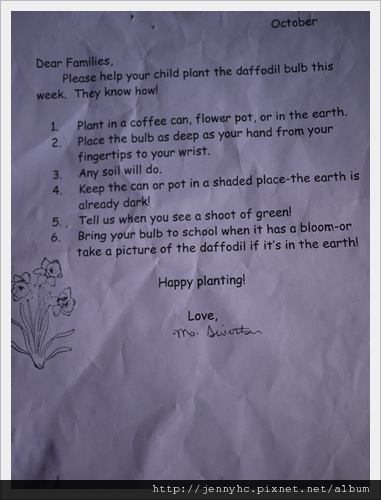 October
Dear Families,
Please help your child plant the daffodil bulb this
week. They know how!
1. Plant in a coffee can, flower pot, or in the earth.
2. Place the bulb as deep as your hand from your
fingertips to your wrist.
3. Any soil will do.
4. Keep the can or pot in a shaded place-the earth is
already dark!
5. Tell us when you see a shoot of green!
6. Bring your bulb to school when it has a bloom-or
take a picture of the daffodil if it's in the earth!
Happy planting!
Love,
http://jennyhc.pixnet.net/album